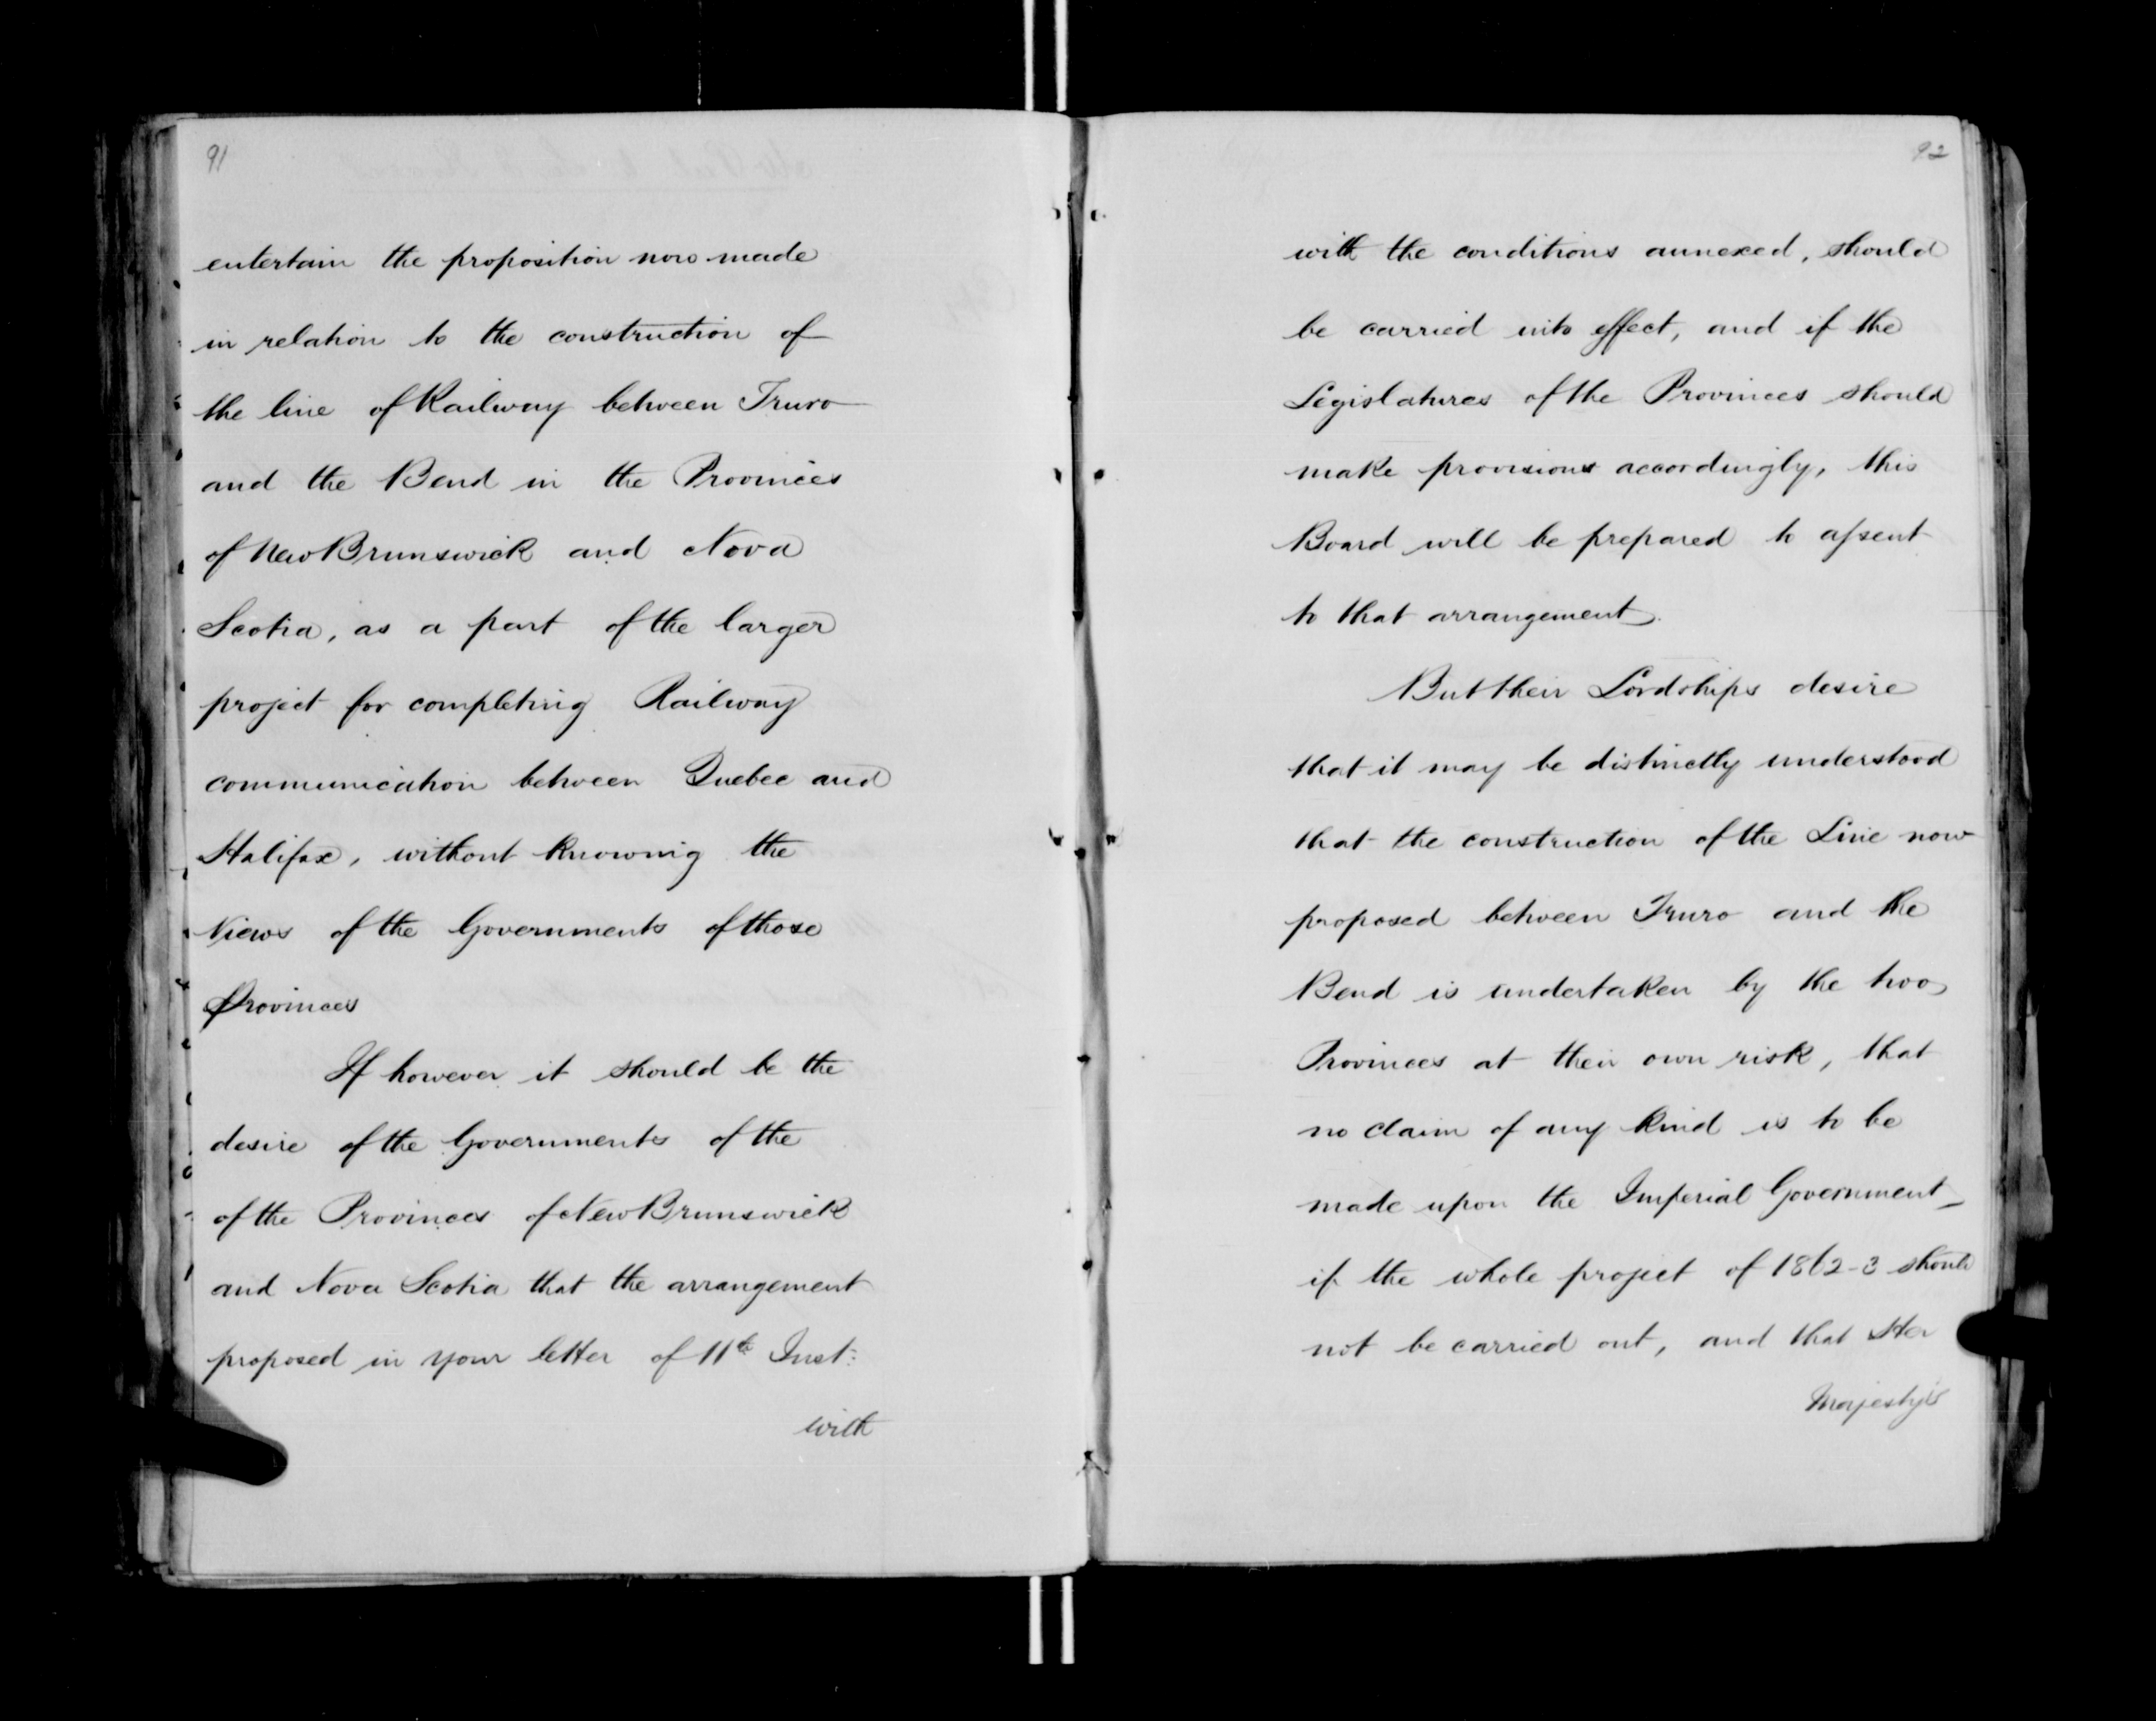 91
entertain the proposition now made
in relation to the construction of
the line of Railway between Truro
and the Bend in the Provinces
of New Brunswick and Nova
Scotia, as a part of the larger
project for completing Railway
communication between Quebec and
Halifax, without knowing the
Views of the Governments of those
Provinces
If however it should be the
desire of the Governments of the
of the Provinces of New Brunswick
and Nova Scotia that the arrangement
proposed in your letter of 11th Inst:
with
92
with the conditions annexed, should
be carried into effect, and if the
Legislatures of the Provinces should
make provisions accordingly, this
Board will be prepared to assent
to that arrangement.
But their Lordships desire
that it may be distinctly understood
that the construction of the Line now
proposed between Truro and the
Bend is undertaken by the two
Provinces at their own risk, that
no claim of any kind is to be
made upon the Imperial Government
if the whole project of 1862-3 should
not be carried out, and that Her
Majesty's